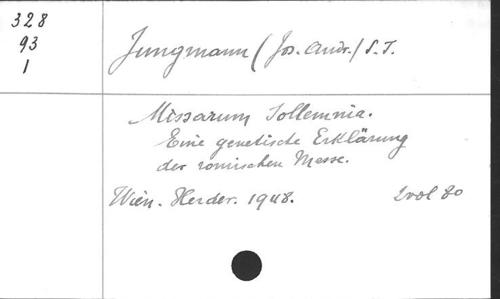 328
93
1
Jungmann (Jos. Andr.) S.J.
Missarum Sollemnia.
Eine genetische Erklärung
der römischen Messe.
Wien. Herder. 1948. 2 vol 8o